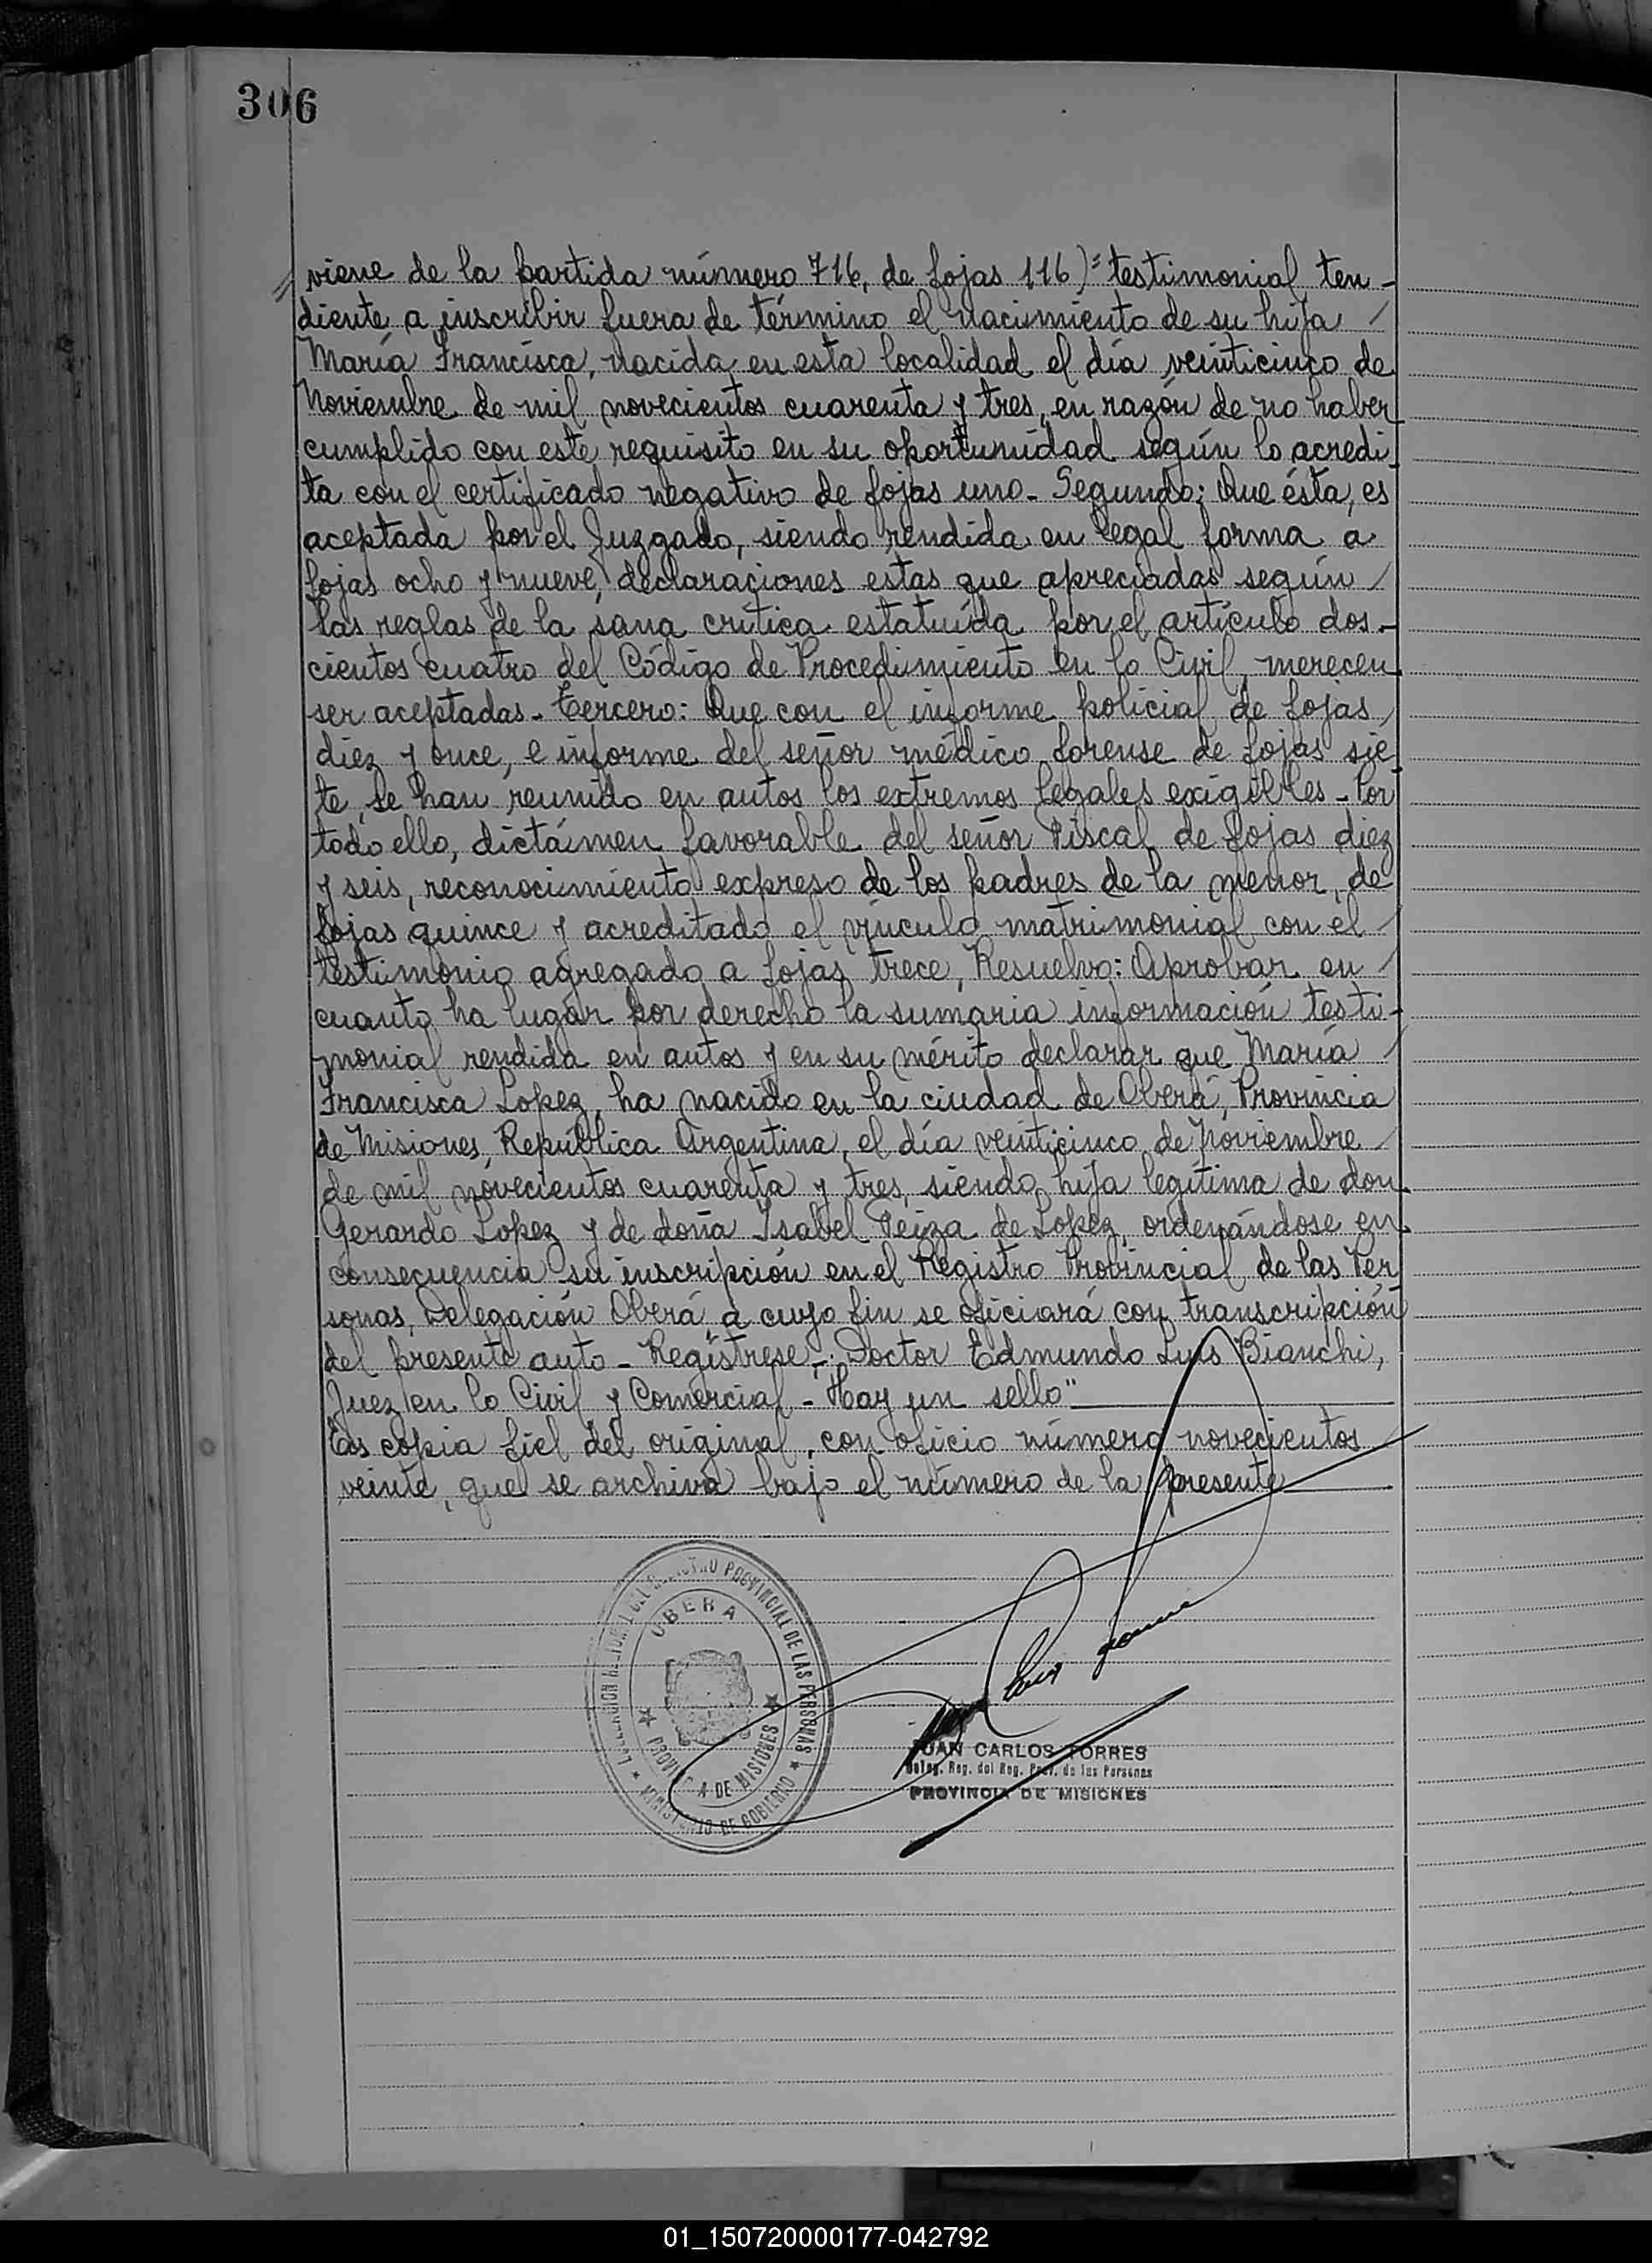 306
viene de la partida número 716, de fojas 116)= testimonial ten-
diente a inscribir fuera de término el nacimiento de su hija /
María Francisca, nacida en esta localidad el día veinticinco de
Noviembre de mil novecientos cuarenta y tres, en razón de no haber
cumplido con este requisito en su oportunidad según lo acredi-
ta con el certificado negativo de fojas uno - Segundo: Que ésta, es
aceptada por el Juzgado, siendo rendida en legal forma a
fojas ocho y nueve, declaraciones estas que apreciadas según /
las reglas de la sana crítica estatuída por el artículo dos-
cientos cuatro del Código de Procedimiento en lo Civil, merecen
ser aceptadas - Tercero: Que con el informe policial de fojas
diez y once, e informe del señor médico forense de fojas sie-
te, se han reunido en autos los extremos legales exigibles - Por
todo ello, dictámen favorable del señor Fiscal de fojas diez
y seis, reconocimiento expreso de los padres de la menor, de
fojas quince y acreditado el vínculo matrimonial con el /
testimonio agregado a fojas trece, Resuelvo: Aprobar en /
cuanto ha lugar por derecho la sumaria información testi-
monial rendida en autos y en su mérito declarar que María /
Francisca Lopez, ha nacido en la ciudad de Oberá, Provincia
de Misiones, República Argentina, el día veinticinco de noviembre /
de mil novecientos cuarenta y tres, siendo hija legítima de don
Gerardo Lopez y de doña Isabel de Lopez, ordenándose en
consecuencia su inscripción en el Registro Provincial de las Per
sonas, Delegación Oberá a cuyo fin se oficiará con transcripción
del presente auto - Regístrese -: Doctor Edmundo Luis Bianchi,
Juez en lo Civil y Comercial - "Hay un sello"
Es copia fiel del original, con oficio número novecientos
veinte, que se archiva bajo el número de la presente
REGISTRO PROVINCIAL DE LAS PERSONAS
OBERA
PROVINCIA DE MISIONES
MINISTERIO DE GOBIERNO
JUAN CARLOS TORRES
Deleg. Reg. del Reg. Prov. de las Personas
PROVINCIA DE MISIONES
01_150720000177-042792